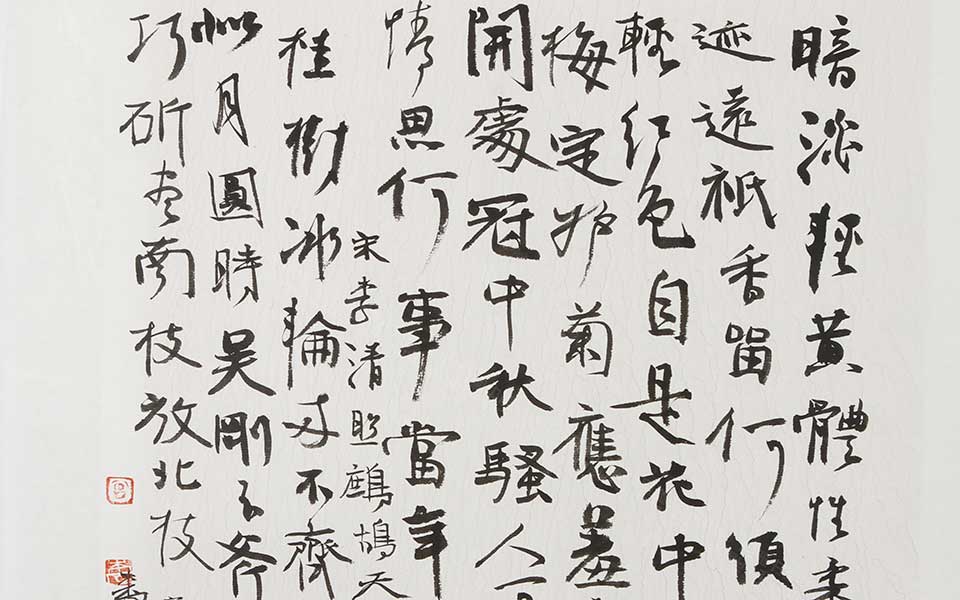 暗淡輕黃體性柔
迹遠祇香留何須
輕紅色自是花中
梅定妒菊應羞
開處冠中秋騷人
情思何事當年
宋李清照鷓鴣天
桂樹冰輪兩不齊
似月圓時吳剛玉斧
巧斫尽南枝放北枝